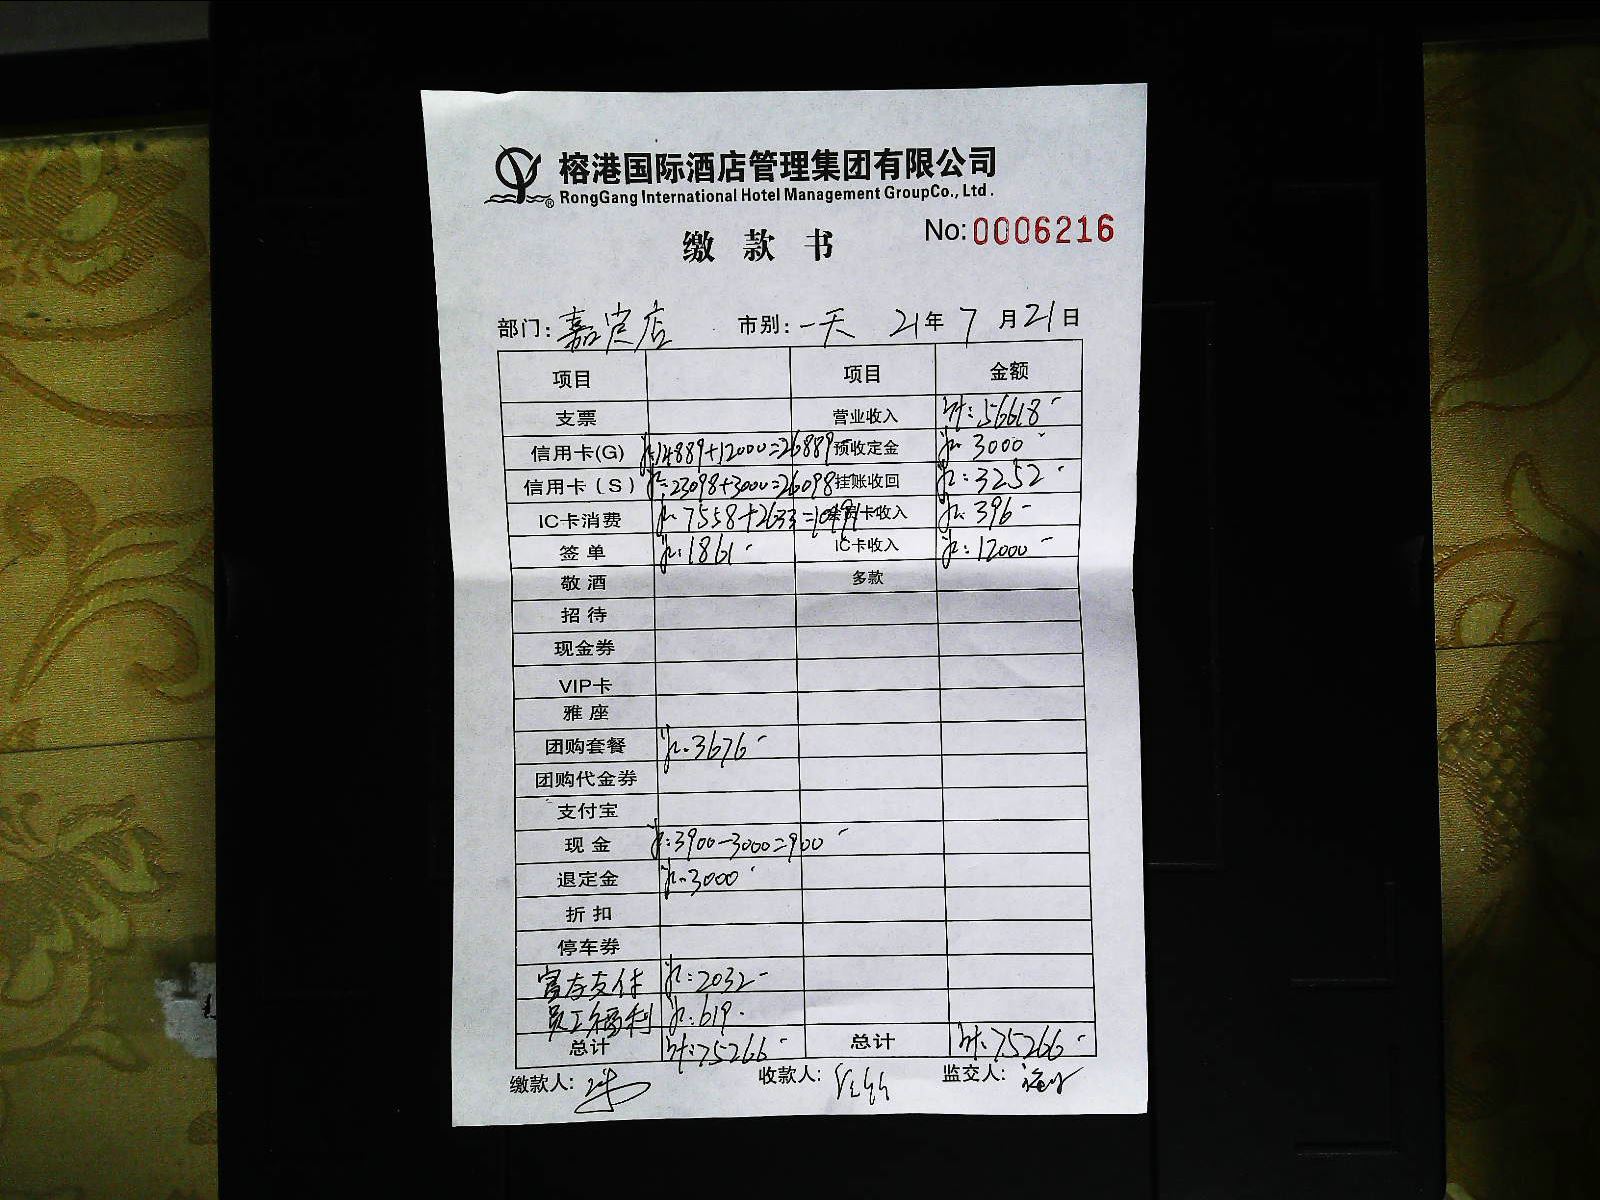 榕港国际酒店管理集团有限公司
RongGang International Hotel Management GroupCo., Ltd.
No:0006216
缴 款 书
部门: 嘉宾店 市别: 一天 21年 7 月 21 日
项目 项目 金额
支票 营业收入 计:56618-
信用卡(G) 计:14889+12000=26889- 预收定金 计:3000-
信用卡(S) 计:23098+3000=26098 挂账收回 计:3252-
IC卡消费 计:7558+2633=10191 会员卡收入 计:396-
签 单 计:1861- IC卡收入 计:12000-
敬 酒 多款
招 待
现金券
VIP卡
雅 座
团购套餐 计:3676-
团购代金券
支付宝
现 金 计:3900-3000=900-
退定金 计:3000-
折 扣
停车券
富友支付 计:2032-
员工福利 计:619-
总计 计:75266- 总计 计:75266-
缴款人: 收款人: 监交人: